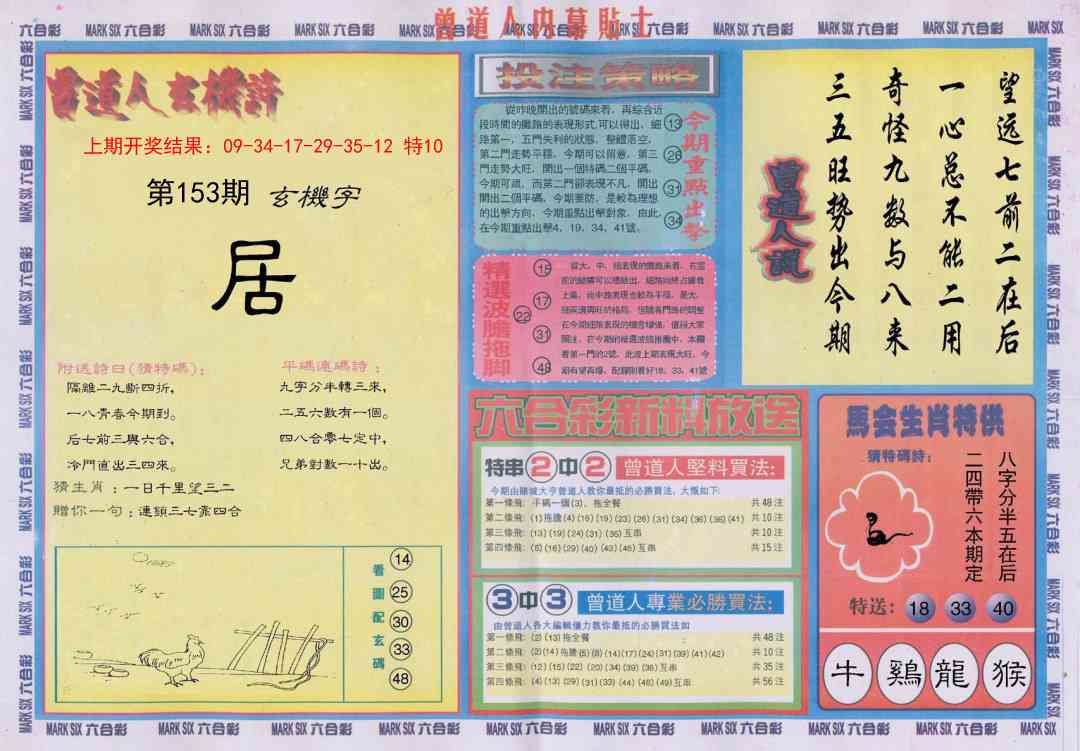 曾道人內幕貼士
六合彩 MARK SIX 六合彩 MARK SIX 六合彩 MARK SIX 六合彩 MARK SIX 六合彩 MARK SIX 六合彩 MARK SIX 六合彩 MARK SIX 六合彩 MARK SIX 六合彩 MARK SIX
曾道人玄機詩
上期开奖结果：09-34-17-29-35-12 特10
第153期 玄機字
居
附送詩曰(猜特碼)：
隔離二九斷四折,
一八青春今期到。
后七前三與六合,
冷門直出三四來。
平碼連碼詩：
九字分半轉三來,
二五六數有一個。
四八合零七定中,
兄弟對數一十出。
猜生肖：一日千里望三二
贈你一句：連頭三七靠四合
看圖配玄碼
14
25
30
33
48
投注策略
從昨晚開出的號碼來看，再綜合近
段時間的攤路的表現形式,可以得出，細
路第一，五門失利的狀態，整體落空，
第二門走勢平穩，今期可以留意，第三
門走勢大旺，開出一個特碼二個平碼，
今期可疏，而第二門卻表現不凡，開出
開出二個平碼，今期要防，是較為理想
的出擊方向，今期重點出擊對象，由此，
在今期重點出擊4、19、34、41號。
今期重點出擊
13
26
31
34
精選波膽拖脚
15
17
22
31
48
六合彩新料放送
特串2中2 曾道人堅料買法:
今期由賭城大亨曾道人教你最抵的必勝買法，大慨如下:
第一條飛: 平碼一個(3)，拖全餐 共48注
第二條飛: (1)拖膽(4)(16)(19)(23)(26)(31)(34)(36)(38)(41) 共10注
第三條飛: (13)(19)(24)(31)(35)互串 共10注
第四條飛: (5)(16)(29)(40)(43)(45)互串 共15注
3中3 曾道人專業必勝買法:
由曾道人各大編輯傾力教你最抵的必勝買法如
第一條飛: (2)(13)拖全餐 共48注
第二條飛: (2)(14)拖膽(5)(8)(14)(17)(24)(31)(39)(41)(42) 共10注
第三條飛: (12)(15)(22)(20)(34)(39)(36)互串 共35注
第四條飛: (4)(13)(29)(31)(33)(44)(48)(49)互串 共56注
曾道人說
望远七前二在后
一心总不能二用
奇怪九数与八来
三五旺势出今期
馬会生肖特供
猜特碼詩:
八字分半五在后
二四帶六本期定
特送: 18 33 40
牛 鷄 龍 猴
MARK SIX 六合彩 MARK SIX 六合彩 MARK SIX 六合彩 MARK SIX 六合彩 MARK SIX 六合彩 MARK SIX 六合彩 MARK SIX 六合彩 MARK SIX 六合彩 MARK SIX 六合彩 MARK SIX